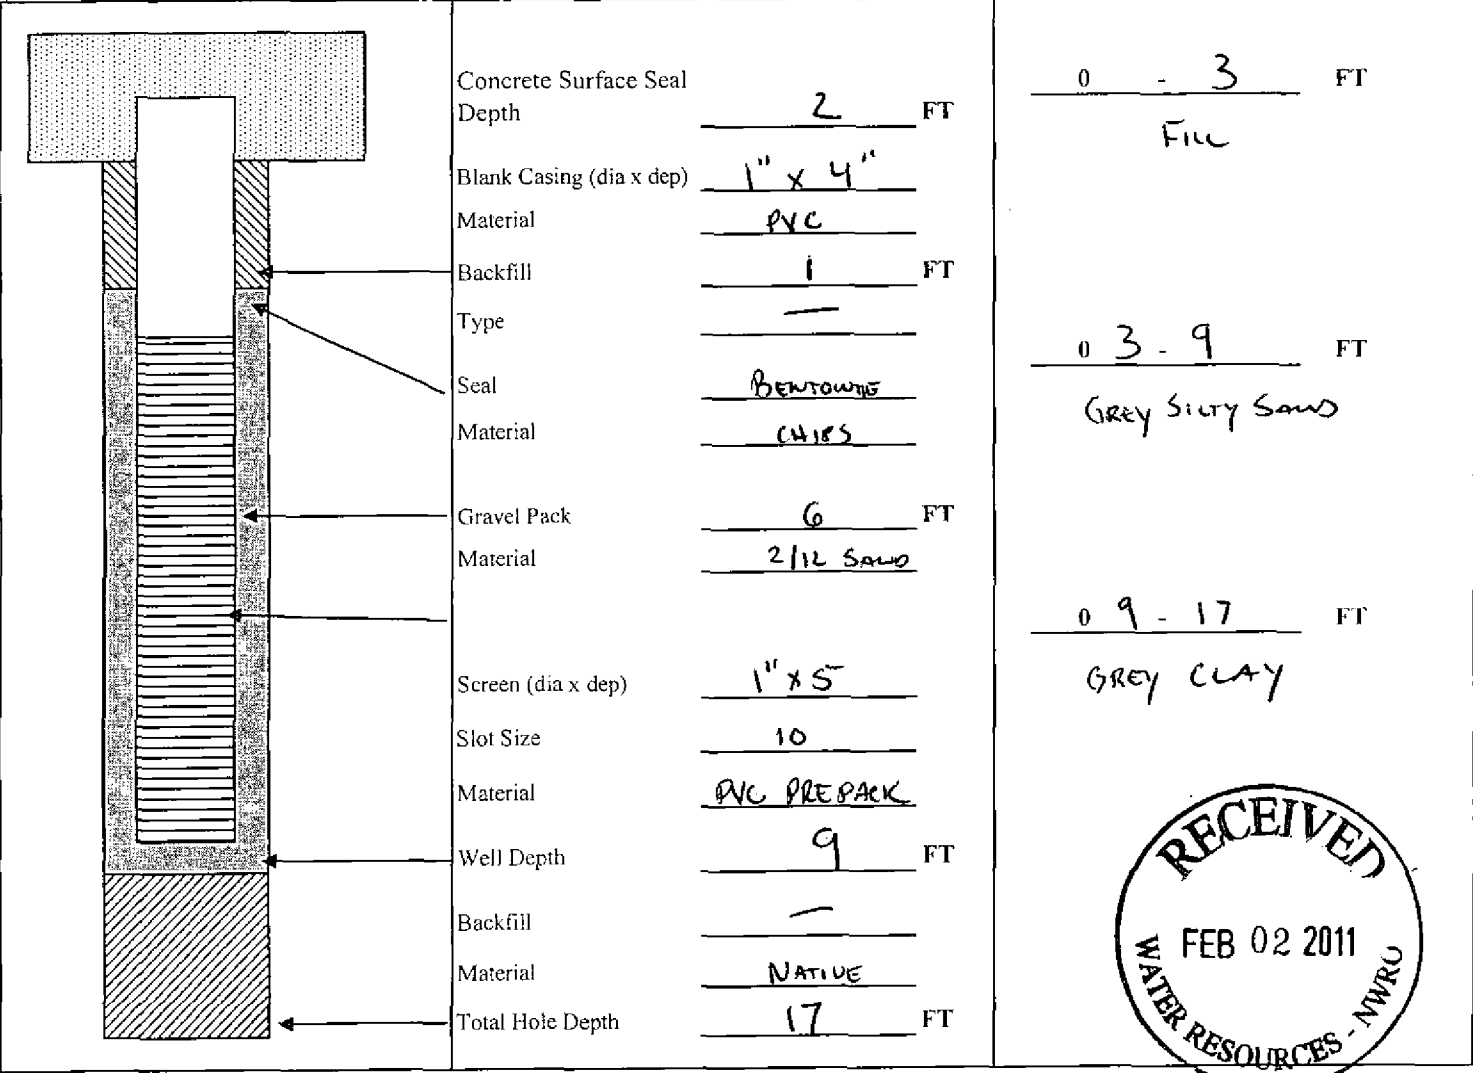 Concrete Surface Seal
Depth 2 FT
Blank Casing (dia x dep) 1" x 4"
Material PVC
Backfill 1 FT
Type —
Seal BENTONITE
Material CHIPS
Gravel Pack 6 FT
Material 2/12 SAND
Screen (dia x dep) 1" x 5
Slot Size 10
Material PVC PREPACK
Well Depth 9 FT
Backfill —
Material NATIVE
Total Hole Depth 17 FT
0 - 3 FT
FILL
0 3 - 9 FT
GREY SILTY SAND
0 9 - 17 FT
GREY CLAY
RECEIVED
FEB 02 2011
WATER RESOURCES - NWRO